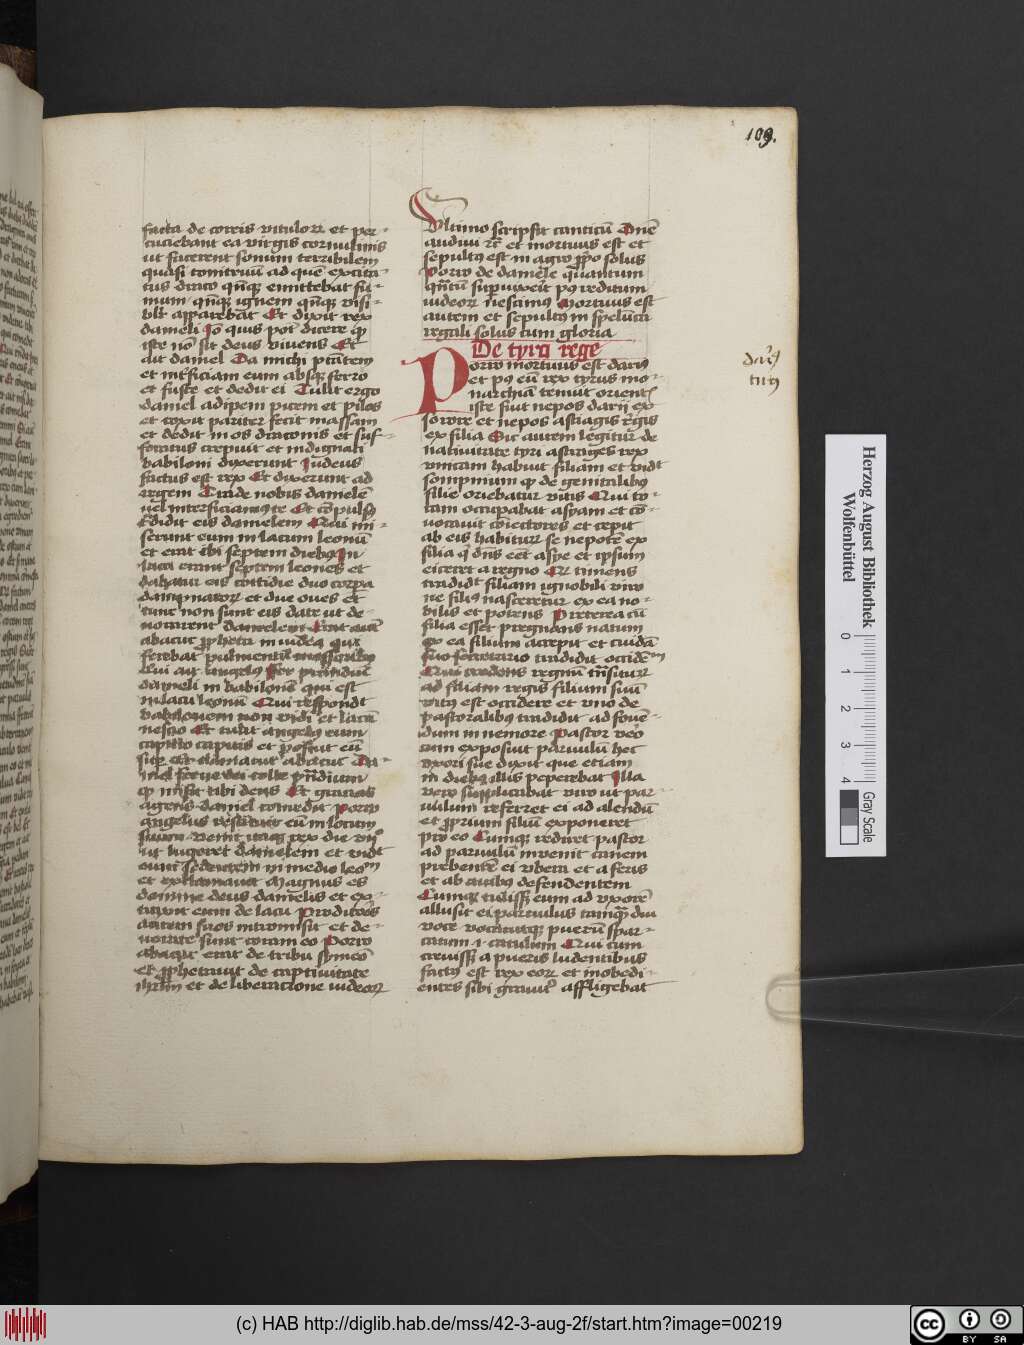 109.
facta de coreis vitulorꝝ et per-
cuciebant ea virgis cornulinis
ut facerent sonum terribilem
quasi tonitruū ad quē excita-
tus draco qn̄qꝫ emittebat fu-
mum qn̄qꝫ ignem qn̄qꝫ visi-
bilr̄ apparebat Et dixit rex
danieli Jō quis pōt dicere ꝙ
iste nō sit deus vivens Et
ait daniel Da michi ptātem
et int̄ficiam eum absqꝫ ferro
et fuste et dedit ei Tulit ergo
daniel adipem picem et pilos
et coxit pariter fecit massam
et dedit in os draconis et suf-
focatus crepuit et indignati
babiloni dixerunt Judeus
factus est rex Et dixerunt ad
regem Trade nobis danielē
uel interficiamꝰ te Et cōpulsꝰ
t̄didit eis danielem Qui mi-
serunt eum in lacum leonū
et erat ibi septem diebꝰ In
lacu erant septem leones et
dabatur eis cottidie duo corpa
dampnatorꝝ et due oues et
tunc non sunt eis date ut de-
uorarent danielem Erat autē
abacuc ꝓpheta in iudea qui
ferebat pulmentū messoribꝰ
Cui ait angelus Fer prandiū
danieli in babilonē qui est
in lacu leonū Qui respondt
babilonem non vidi et lacū
nescio Et tulit angelꝰ eum
capillo capitis et posuit eū
supꝫ Et clamauit abacuc Da-
niel serue dei tolle prādium
ꝙ misit tibi deus Et gracias
agens daniel comedit Porro
angelus restituit eū in locum
suum Venit itaqꝫ rex die vijͦ
ut lugeret danielem et vidt
eum sedentem in medio leoᵐ
et exclamauit Magnus es
domine deus danielis et ex-
traxit eum de lacu Proditores
autem suos intromisit et de-
uorate sunt coram eo Porro
abacuc erat de tribu symeō
et ꝓphetauit de captiuitate
ihrlm et de liberacione iudeorꝝ
Ultimo scripsit canticū Dnē
audiui rc̄ et mortuus est et
sepultꝰ est in agro ꝓpo solus
Porro de daniele quantum
qn̄tū supuixeit pꝰ reditum
iudeorꝝ nescimꝰ Mortuus est
autem et sepultꝰ in spelūca
regali solus cum gloria
De tyro rege
Porro mortuus est dariꝰ
et pꝰ eū rex tyrus mo-
narchiā tenuit orientꝭ
iste fuit nepos darij ex
sorore et nepos astiagis regis
ex filia Sic autem legitur de
natiuitate tyri astiages rex
unicam habuit filiam et vidt
sompnium ꝙ de genitalibꝰ
filie oriebatur vitis Qui to-
tam occupabat asyam et cō-
uocauit coiectores et cepit
ab eis habiturꝫ se nepotē ex
filia ꝗ dn̄s eēt asye et ipsum
eiceret a regno Et timens
tradidt filiam ignobili viro
ne filiꝰ nasceretur ex ea no-
bilis et potens Preterea cū
filia esset pregnans natum
ex ea filium accepit et cuidā
suo secretario tradidit occidēᵐ
Qui credens regnū insiturꝫ
ad filiam regis filium suū
veritꝰ est occidere et uno de
pastoralibꝰ tradidit ad fouē-
dum in nemore Pastor vēo
cum exposuit paruulū hec
vxori sue dixit que etiam
in diebꝰ illis pepererat Illa
vero supplicabat viro ut par-
uulum referret ei ad alendū
et ꝓprium filiū exponeret
pro eo Cumqꝫ rediret pastor
ad paruulū inuenit canem
prebentē ei vbera et a feris
et ab auibꝰ defendentem
Cumqꝫ tulissꝫ eum ad vxorē
allusit ei paruulus tamqꝫ diu
voce vocauitqꝫ puerū spar-
catum .i. catulum Qui cum
creuissꝫ a pueris ludentibus
factꝰ est rex eorꝝ et inobedi-
entes sibi grauitꝰ affligebat
dariꝰ
tirꝰ
Herzog August Bibliothek
Wolfenbüttel
0 1 2 3 4
Gray Scale
(c) HAB http://diglib.hab.de/mss/42-3-aug-2f/start.htm?image=00219
cc
BY SA